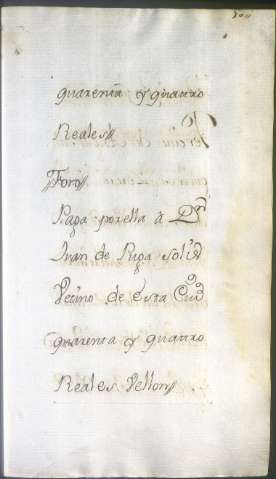 quarenta y quatro
Reales
Foro
Paga por ella à Dn
Juan de Puga
Vecino de esta Ciud
quarenta y quatro
Reales Vellon